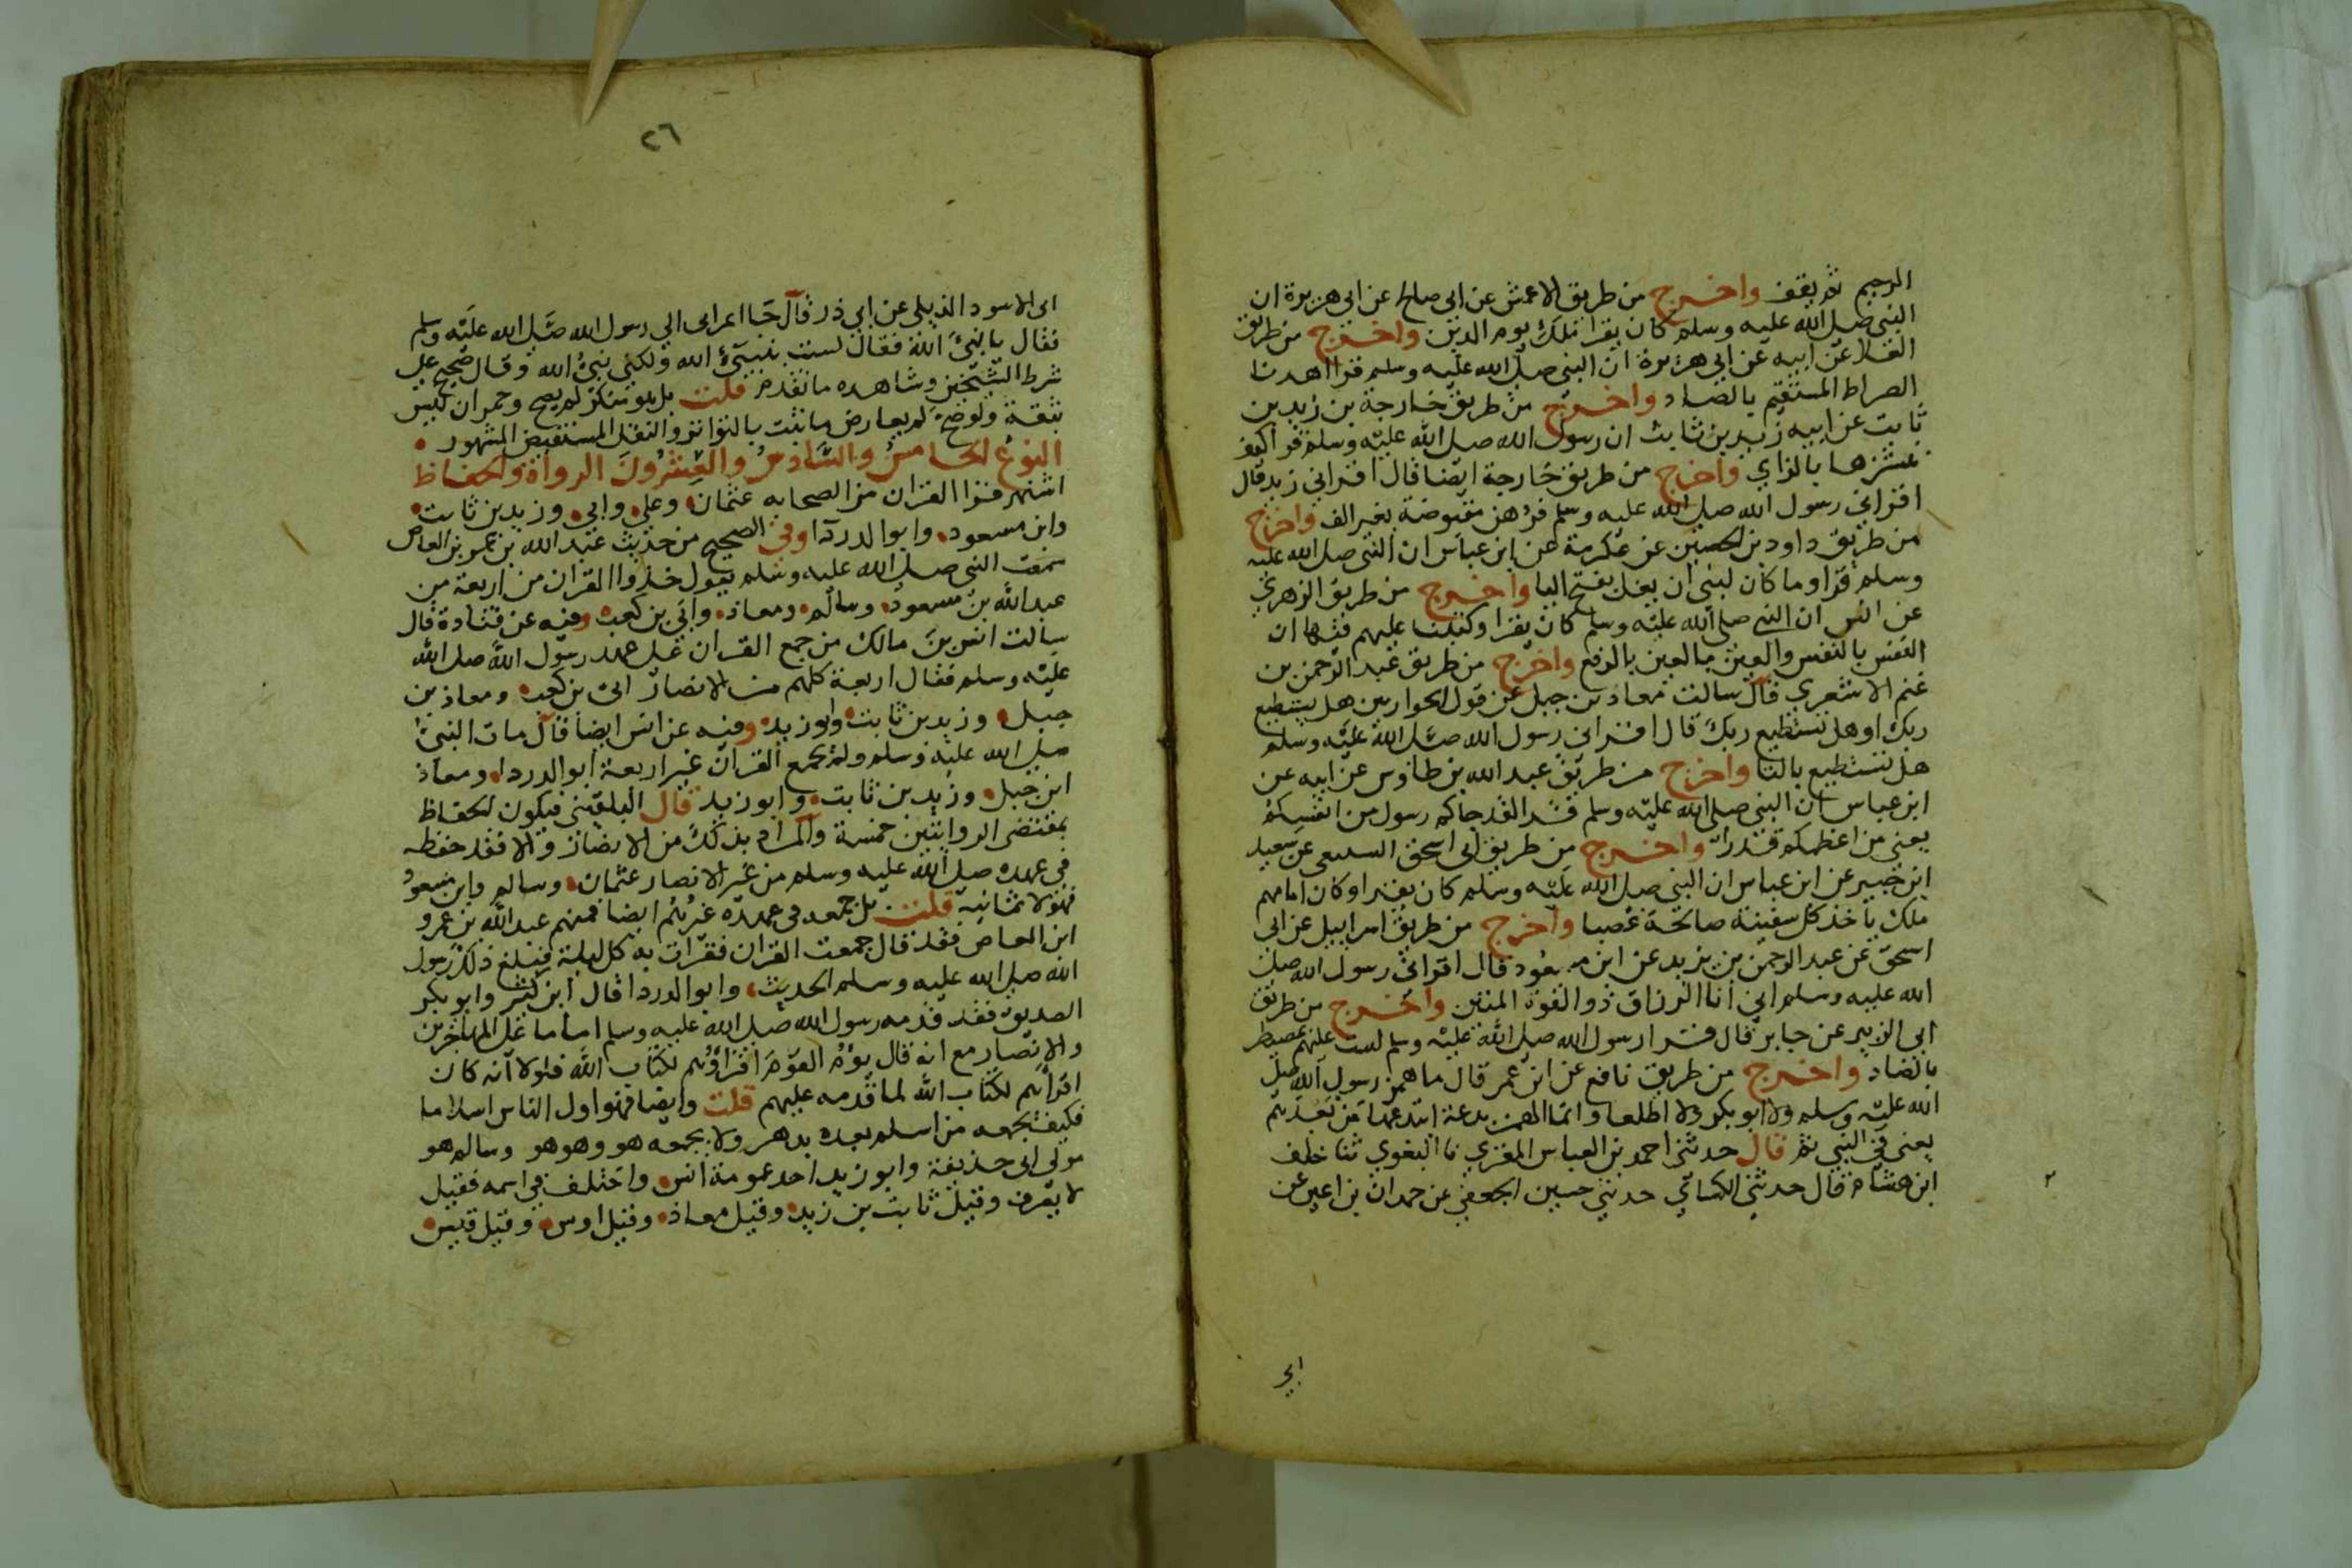 الرحيم ثم يقف واخرج من طريق الاعمش عن ابي صالح عن ابي هريرة ان
النبي صلى الله عليه وسلم كان يقرا ملك يوم الدين واخرج من طريق
العلا عن ابيه عن ابي هريرة ان النبي صلى الله عليه وسلم قرا اهدنا
الصراط المستقيم بالصاد واخرج من طريق خارجة بن زيد بن
ثابت عن ابيه زيد بن ثابت ان رسول الله صلى الله عليه وسلم قرا كيف
ننشزها بالزاي واخرج من طريق خارجة ايضا قال اقراني زيد قال
اقراني رسول الله صلى الله عليه وسلم فرهن مقبوضة بغير الف واخرج
من طريق داود بن الحصين عن عكرمة عن ابن عباس ان النبي صلى الله عليه
وسلم قرا وما كان لنبي ان يغل بفتح اليا واخرج من طريق الزهري
عن انس ان النبي صلى الله عليه وسلم كان يقرا وكتبنا عليهم فيها ان
النفس بالنفس والعين بالعين بالرفع واخرج من طريق عبد الرحمن بن
غنم الاشعري قال سالت معاذ بن جبل عن قول الحواريين هل يستطيع
ربك او هل تستطيع ربك قال اقراني رسول الله صلى الله عليه وسلم
هل تستطيع بالتا واخرج من طريق عبد الله بن طاوس عن ابيه عن
ابن عباس ان النبي صلى الله عليه وسلم قرا لقد جاكم رسول من انفسكم
يعني من اعظمكم قدرا واخرج من طريق ابي اسحق السبيعي عن سعيد
ابن جبير عن ابن عباس ان النبي صلى الله عليه وسلم كان يقرا وكان امامهم
ملك ياخذ كل سفينة صالحة غصبا واخرج من طريق اسراييل عن ابي
اسحق عن عبد الرحمن بن يزيد عن ابن مسعود قال اقراني رسول الله صلى
الله عليه وسلم اني انا الرزاق ذو القوة المتين واخرج من طريق
ابي الزبير عن جابر قال قرا رسول الله صلى الله عليه وسلم لست عليهم بمصيطر
بالصاد واخرج من طريق نافع عن ابن عمر قال ما همز رسول الله صلى
الله عليه وسلم ولا ابو بكر ولا الخلفا وانما الهمز بدعة ابتدعها من بعدهم
يعني في النبي ثم قال حدثني احمد بن العباس المقري نا البغوي ثنا خلف
ابن هشام قال حدثني الكسائي حدثني حسين الجعفي عن حمران بن اعين عن
ابي
٢٦
ابي الاسود الديلي عن ابي ذر قال جا اعرابي الي رسول الله صلى الله عليه وسلم
فقال يا نبيء الله فقال لست بنبيء الله ولكني نبي الله وقال صحيح على
شرط الشيخين وشاهده ما تقدم قلت بل هو منكر لم يصح وحمران ليس
بثقة ولو صح لم يعارض ما ثبت بالتواتر والنقل المستفيض المشهور
النوع الخامس والسادس والعشرون الرواة والحفاظ
اشتهر فقرا القران من الصحابه عثمان وعلي وابي وزيد بن ثابت
وابن مسعود وابو الدردآ وفي الصحيح من حديث عبد الله بن عمرو بن العاص
سمعت النبي صلى الله عليه وسلم يقول خذوا القران من اربعة من
عبد الله بن مسعود وسالم ومعاذ وابي بن كعب وفيه عن قتادة قال
سالت انس بن مالك من جمع القران على عهد رسول الله صلى الله
عليه وسلم فقال اربعة كلهم من الانصار ابي بن كعب ومعاذ بن
جبل وزيد بن ثابت وابو زيد وفيه عن انس ايضا قال مات النبي
صلى الله عليه وسلم ولم يجمع القران غير اربعة ابو الدردا ومعاذ
ابن جبل وزيد بن ثابت وابو زيد قال البلقيني فيكون الحفاظ
بمقتضى الروايتين خمسة والمراد بذلك من الانصار والا فقد حفظه
في عهده صلى الله عليه وسلم من غير الانصار عثمان وسالم وابن مسعود
فهولا ثمانيه قلت بل جمعه في عهده غيرهم ايضا فمنهم عبد الله بن عمرو
ابن العاص فقد قال جمعت القران فقرات به كل ليلة فبلغ ذلك رسول
الله صلى الله عليه وسلم الحديث وابو الدردا قال ابن كثير وابو بكر
الصديق فقد قدمه رسول الله صلى الله عليه وسلم اماما على المهاجرين
والانصار مع انه قال يؤم القوم اقراؤهم لكتاب الله فلولا انه كان
اقراهم لكتاب الله لما قدمه عليهم قلت وايضا فهو اول الناس اسلاما
فكيف يجمعه من اسلم بعده بدهر ولا يجمعه هو وهو هو وسالم هو
مولى ابي حذيفة وابو زيد احد عمومة انس واختلف في اسمه فقيل
لا يعرف وقيل ثابت بن زيد وقيل معاذ وقيل اوس وقيل قيس